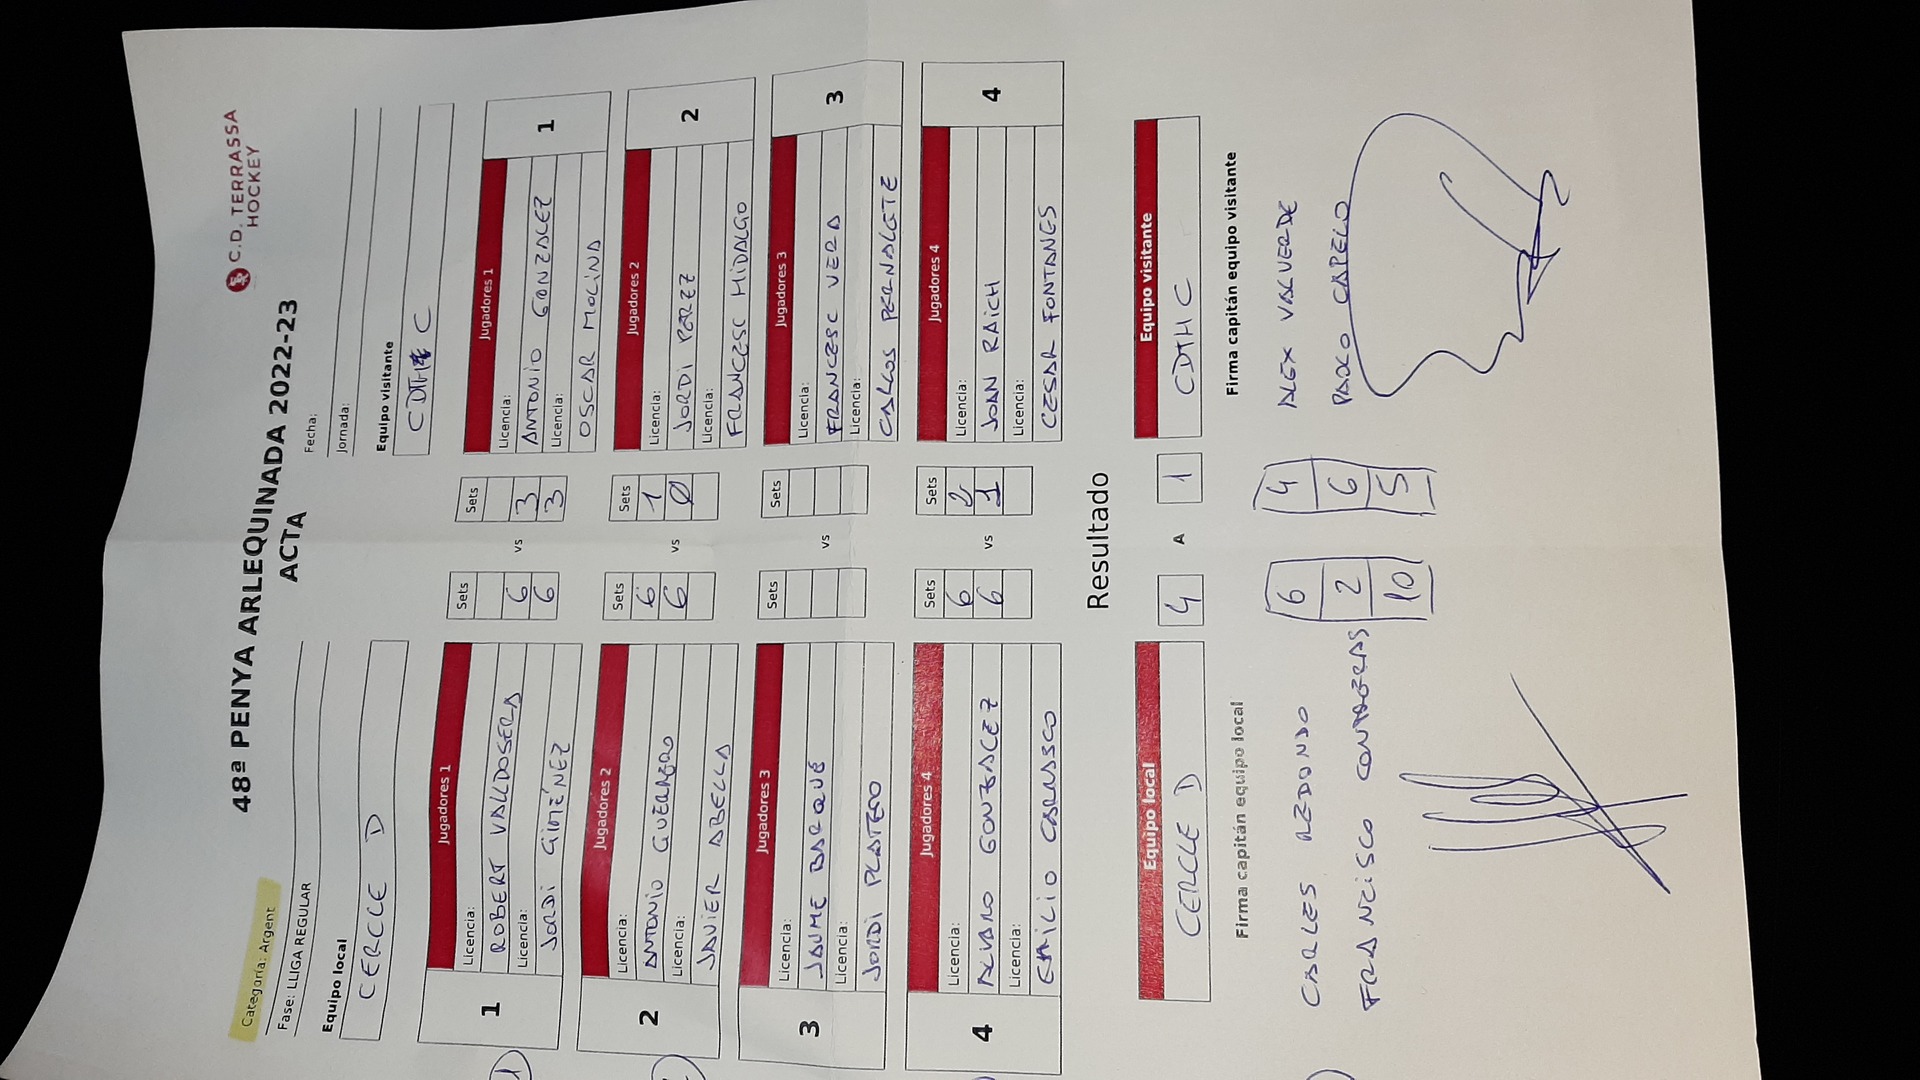 C.D. TERRASSA
HOCKEY
48ª PENYA ARLEQUINADA 2022-23
ACTA
Categoría: Argent
Fecha:
Fase: LLIGA REGULAR
Jornada:
Equipo local
Equipo visitante
CERCLE D
CDTH C
Jugadores 1
Sets
Sets
Jugadores 1
1
Licencia:
ROBERT VALLDOSERA
6
vs
3
Licencia:
ANTONIO GONZALEZ
1
Licencia:
JORDI GIMÉNEZ
6
3
Licencia:
OSCAR MOLINA
Jugadores 2
Sets
Sets
Jugadores 2
2
Licencia:
ANTONIO GUERRERO
6
vs
1
Licencia:
JORDI PEREZ
2
Licencia:
JAVIER ABELLA
6
0
Licencia:
FRANCESC HIDALGO
Jugadores 3
Sets
Sets
Jugadores 3
3
Licencia:
JAUME BARQUÉ
vs
Licencia:
FRANCESC VERA
3
Licencia:
JORDI PLATERO
Licencia:
CARLOS PERNALETE
Jugadores 4
Sets
Sets
Jugadores 4
4
Licencia:
ALVARO GONZALEZ
6
vs
2
Licencia:
JOAN RAICH
4
Licencia:
EMILIO CARRASCO
6
1
Licencia:
CESAR FONTANES
Resultado
Equipo local
Equipo visitante
CERCLE D
4
A
1
CDTH C
Firma capitán equipo local
Firma capitán equipo visitante
CARLES REDONDO
6
4
ALEX VALVERDE
FRANCISCO CONTRERAS
2
6
PAOLO CAPELO
10
5